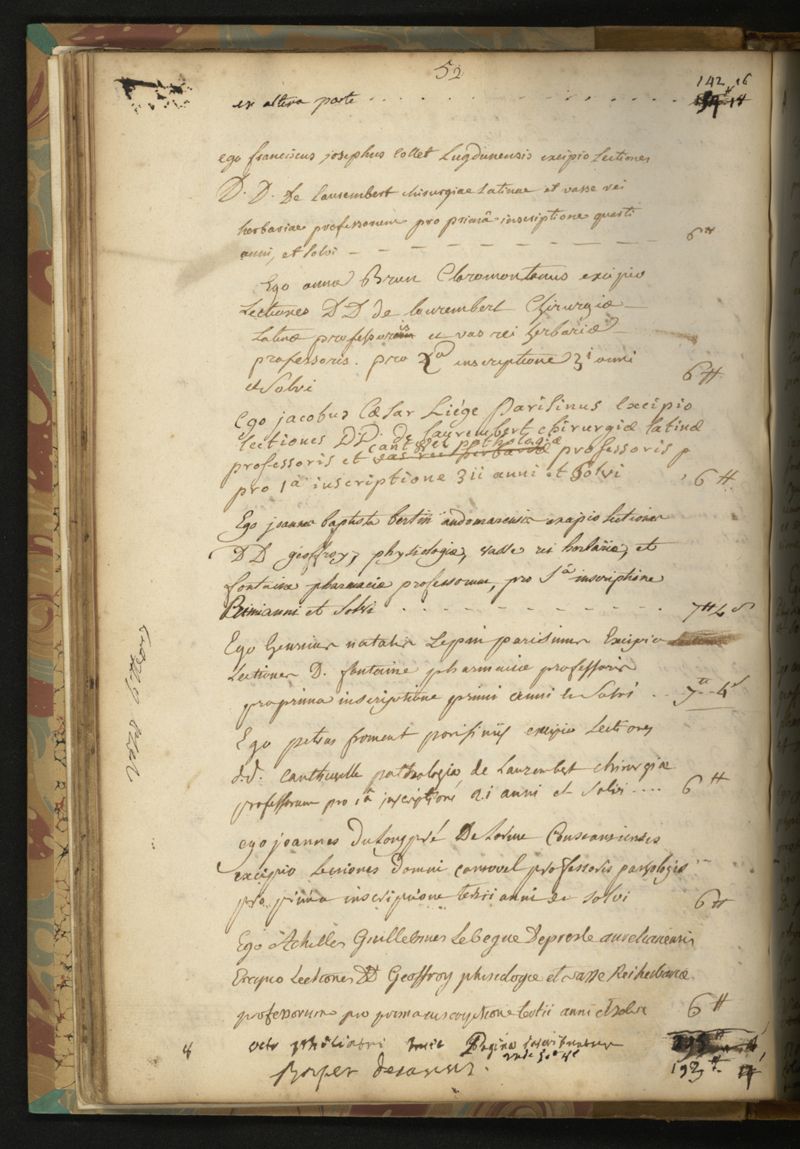 52
142 16
ex altera parte . . . . . . . . . .
ego franciscus josephus Collet Lugdunensis excipio Lectiones
D. D. De Laurembert chirurgiae Latinae et vasse rei
herbariae professorum pro primâ inscriptione quarti
anni, et solvi — — — — — — — — 6 ₶
Ego anna Brun Claromontanus excipio
Lectiones DD de laurembert Chirurgiæ
Latinæ professoris et vas rei herbariæ
professoris. pro 2a inscriptione 3i anni
et Solvi 6 ₶
Ego jacobus Cæsar Liége Parisinus Excipio
lectiones DD. de laurembert chirurgiæ latinæ
professoris et pathologiæ professoris p
pro 1a inscriptione 3ii anni et Solvi 6 ₶
Ego joannes baptista bertin audomarensis excipio lectiones
DD geoffroy, physiologiæ, vasse rei herbariæ, et
fontaine pharmaciæ professorum, pro 1a inscriptione
Primi anni et Solvi . . . . . . . . 7 ₶ 4 s
Ego natalis Lepin parisinus Excipio
Lectiones D. fontaine pharmaciæ professoris
pro prima inscriptione primi anni et Solvi . . 7 ₶ 4 s
Ego petrus froment parisinus excipio Lectiones
d.d. pathologiæ de Laurembert chirurgiæ
professorum pro 1a inscriptione 2i anni et Solvi .... 6 ₶
ego joannes Dulongpré Delorme
excipio Lectiones Domni professoris pathologiæ
pro prima inscriptione tertii anni et solvi 6 ₶
Ego Achilles Guillelmus Lebegue Depresle aurelianensis
Excipio Lectiones DD Geoffroy phisologiæ et vasse Rei herbariæ
professorum pro prima inscriptione tertii anni et Solvi 6 ₶
8 octo philiatri Pagina
193 ₶ 4
Boyer decanus.